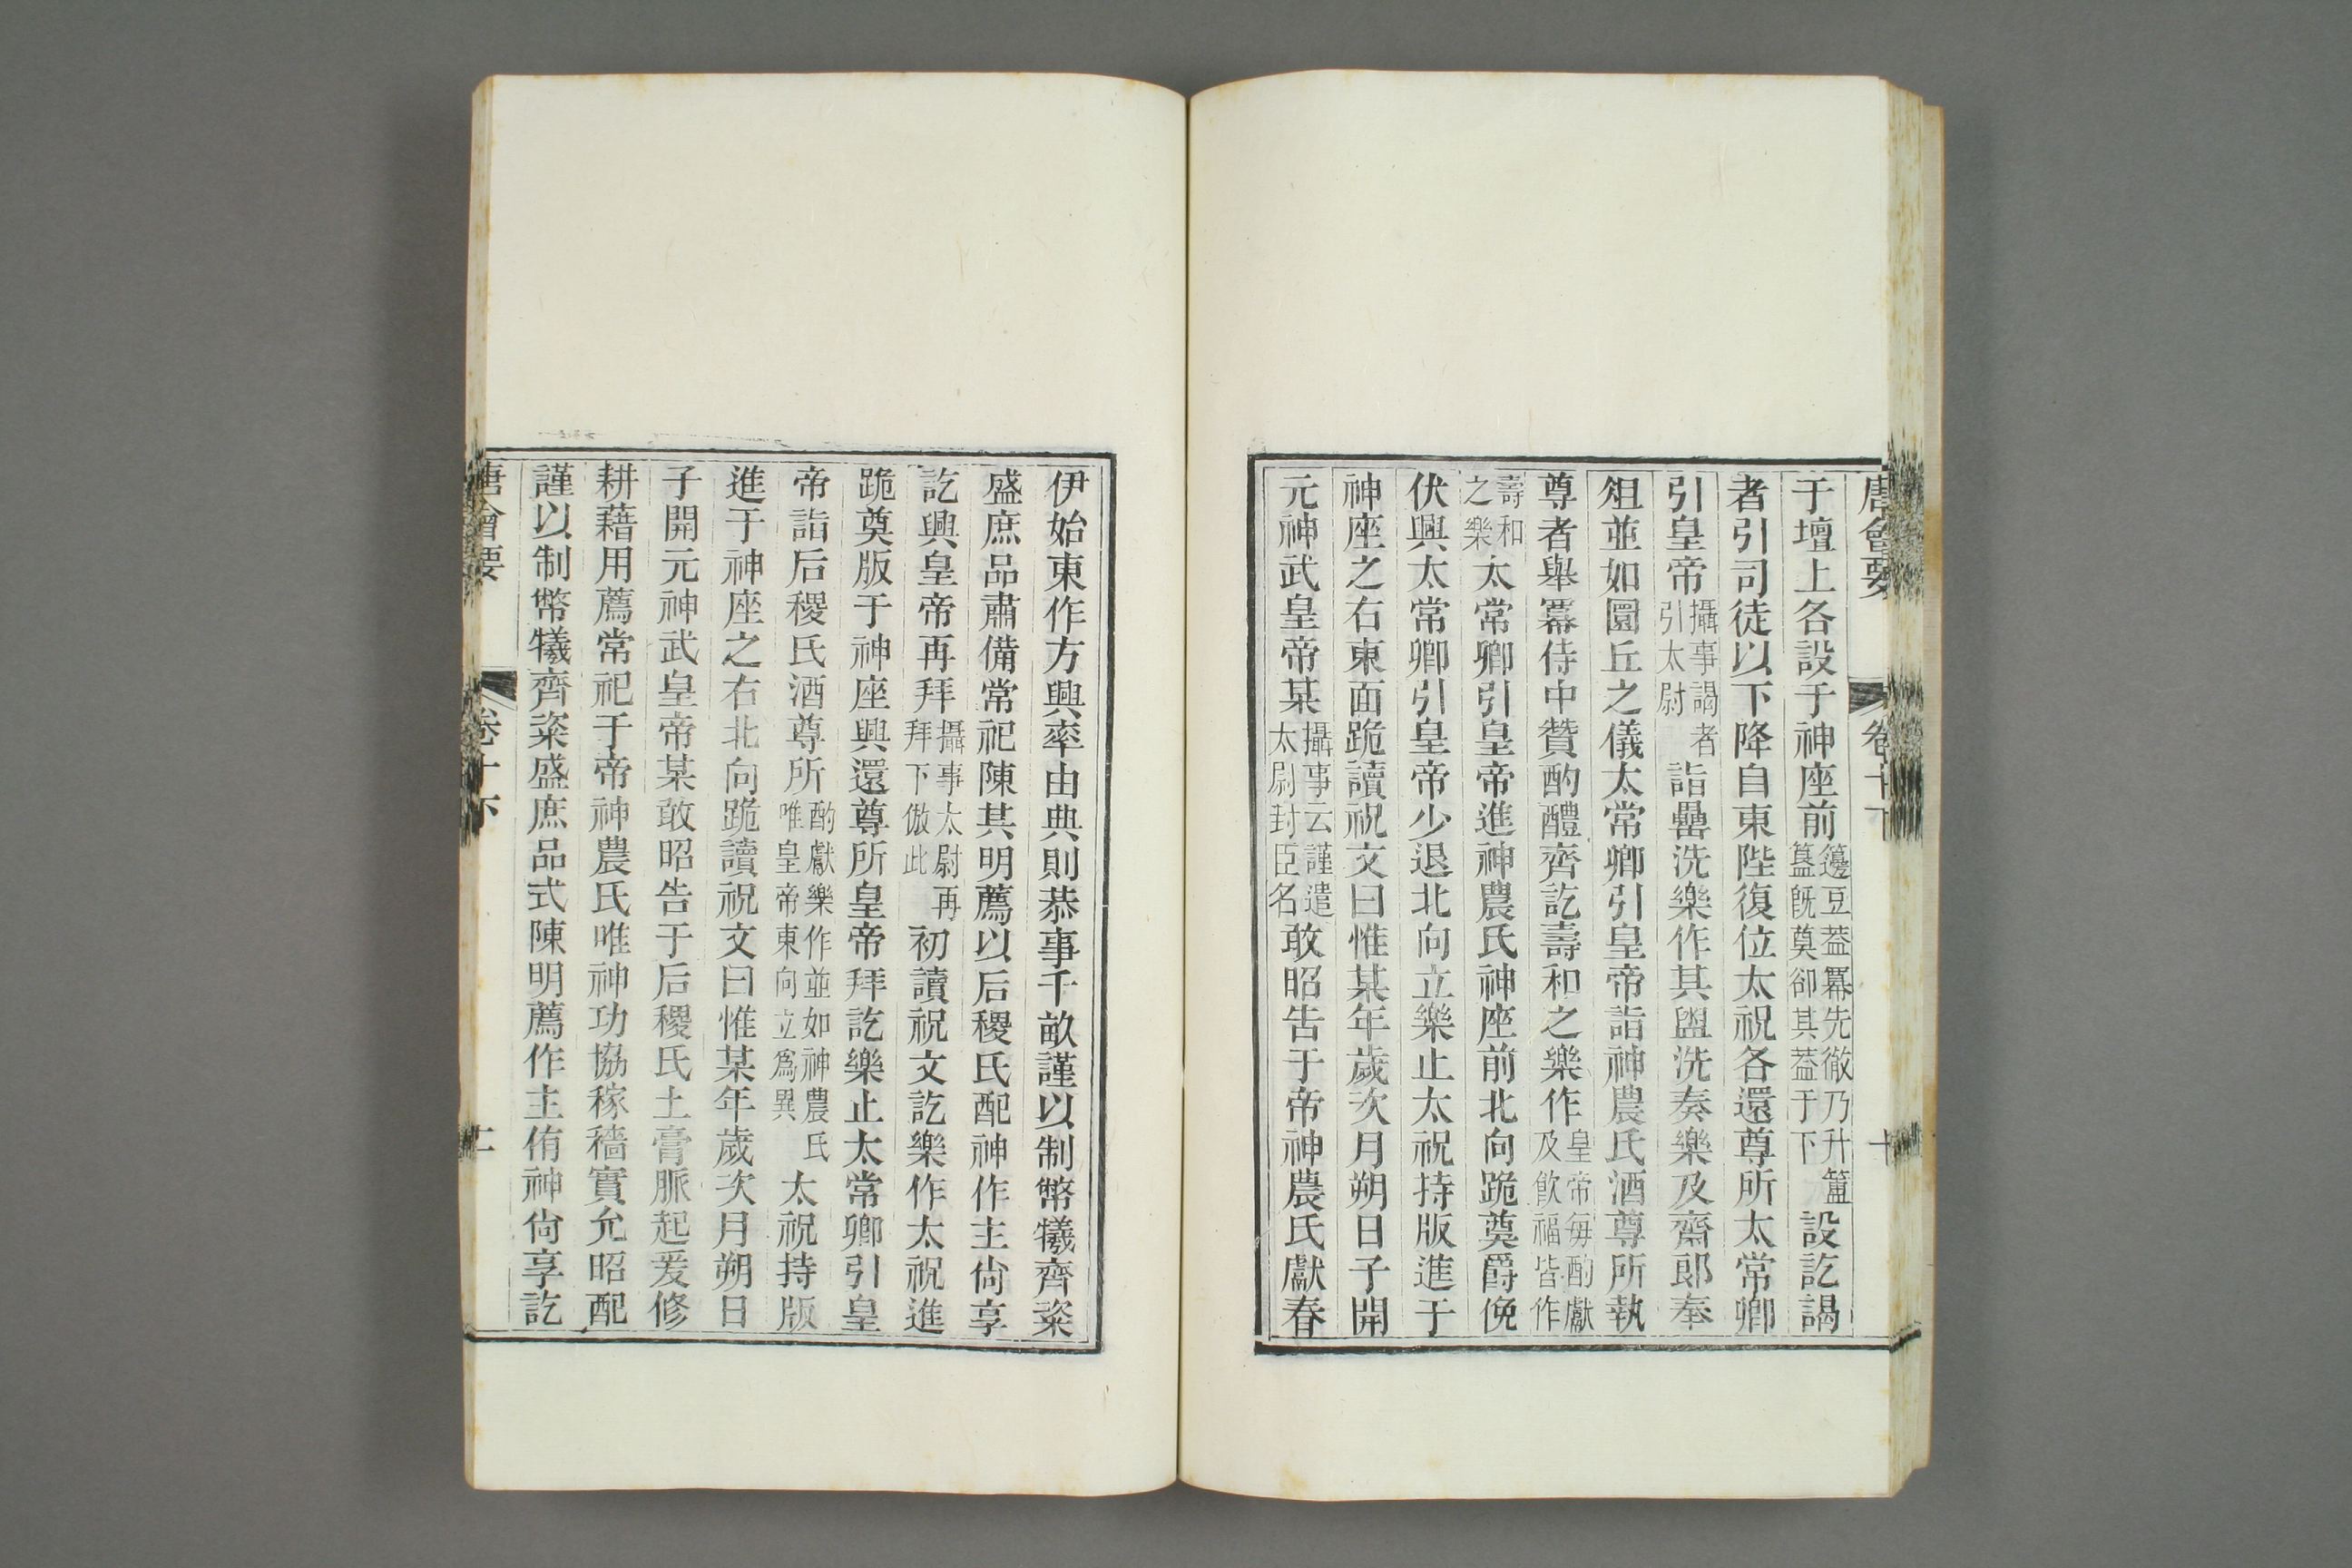 唐會要 卷十下 十
于壇上各設于神座前籩豆蓋冪先徹乃升簠簋旣奠卻其蓋于下設訖謁
者引司徒以下降自東陛復位太祝各還尊所太常卿
引皇帝攝事謁者引太尉詣罍洗樂作其盥洗奏樂及齋郎奉
俎並如圜丘之儀太常卿引皇帝詣神農氏酒尊所執
尊者舉冪侍中贊酌醴齊訖壽和之樂作皇帝每酌獻及飮福皆作
壽和之樂太常卿引皇帝進神農氏神座前北向跪奠爵俛
伏興太常卿引皇帝少退北向立樂止太祝持版進于
神座之右東面跪讀祝文曰惟某年歲次月朔日子開
元神武皇帝某攝事云謹遣太尉封臣名敢昭告于帝神農氏獻春
伊始東作方興率由典則恭事千畝謹以制幣犧齊粢
盛庶品肅備常祀陳其明薦以后稷氏配神作主尙享
訖興皇帝再拜攝事太尉再拜下倣此初讀祝文訖樂作太祝進
跪奠版于神座興還尊所皇帝拜訖樂止太常卿引皇
帝詣后稷氏酒尊所酌獻樂作並如神農氏唯皇帝東向立爲異太祝持版
進于神座之右北向跪讀祝文曰惟某年歲次月朔日
子開元神武皇帝某敢昭告于后稷氏土膏脈起爰修
耕藉用薦常祀于帝神農氏唯神功協稼穡實允昭配
謹以制幣犧齊粢盛庶品式陳明薦作主侑神尙享訖
唐會要 卷十下